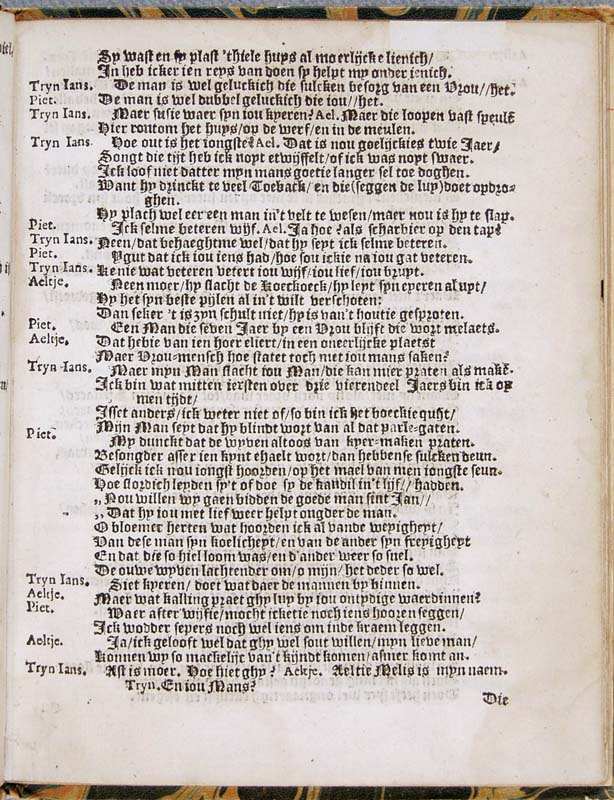 Sy wast en sy plast 'thiele huys al moerlijcke lienich/
In heb icker ien reys van doen sy helpt my onder ienich.
Tryn Ians. De man is wel geluckich die sulcken besorg van een Vrou//het.
Piet. De man is wel dubbel geluckich die iou//het.
Tryn Ians. Maer susie waer syn iou kyeren? Ael. Maer die loopen vast speult
Hier rontom het huys/op de werf/en in de meulen.
Tryn Ians. Hoe out is het iongste? Ael. Dat is nou goelijckies twie Jaer/
Songt die tijt heb ick noyt etwijffelt/of ick was noyt swaer.
Ick loof niet datter mijn mans goetie langer sel toe doghen.
Want hy drinckt te veel Toeback/en die (seggen de luy) doet opdro-
ghen.
Hy plach wel eer een man in't velt te wesen/maer nou is hy te slap.
Piet. Ick selme beteren wijf. Ael. Ja hoe? als scharbier op den tap?
Tryn Ians. Neen/dat behaeghtme wel/dat hy seyt ick selme beteren.
Piet. Ygut dat ick iou iens had/hoe sou ickie na iou gat veteren.
Tryn Ians. Kenie wat veteren vetert iou wijf/iou lief/iou bruyt.
Aeltje. Neen moer/hy slacht de Koeckoeck/hy leyt syn eyeren al uyt/
Hy het syn beste pijlen al in't wilt verschoten:
Dan seker 't is zyn schult niet/hy is van't houtie gesproten.
Piet. Een Man die seven Jaer by een Vrou blijft die wort melaets.
Aeltje. Dat hebie van ien hoer eliert/in een oneerlijcke plaetst
Maer Vrou-mensch hoe statet toch met iou mans saken?
Tryn Ians. Maer myn Man slacht iou Man/die kan mier praten als maké.
Ick bin wat mitten iersten over drie vierendeel Jaers bin ick op
men tijdt/
Isset anders/ick weter niet of/so bin ick het boeckie quyt/
Mijn Man seyt dat hy blindt wort van al dat parle-gaten.
Piet. My dunckt dat de wyven altoos van kyer-maken praten.
Besongder asser ien kynt ehaelt wort/dan hebbense sulcken deun.
Gelijck ick nou iongst hoorden/op het mael van men iongste seun.
Hoe slordich leyden sy't of doe sy de kandil in't lijf// hadden.
„Nou willen wy gaen bidden de goede man sint Jan//
„Dat hy iou met lief weer helpt ongder de man.
O bloemer herten wat hoorden ick al vande weyigheyt/
Van dese man syn koelicheyt/en van de ander syn freyigheyt
En dat die so hiel loom was/en d'ander weer so snel.
De ouwe wyven lachtender om/o mijn/het deder so wel.
Tryn Ians. Siet kyeren/ doet wat daer de mannen by binnen.
Aeltje. Maer wat kalling praet ghy luy by iou ontydige waerdinnen?
Piet. Waer after wijfie/mocht icketie noch iens hooren seggen/
Ick wodder sepers noch wel iens om inde kraem leggen.
Aeltje. Ja/ick gelooft wel dat ghy wel sout willen/myn lieve man/
Konnen wy so mackelijc van't kijndt komen/asmer komt an.
Tryn Ians. Ast is moer. Hoe hiet ghy? Aeltje. Aeltie Melis is mijn naem.
Tryn. En iou Mans?
Die